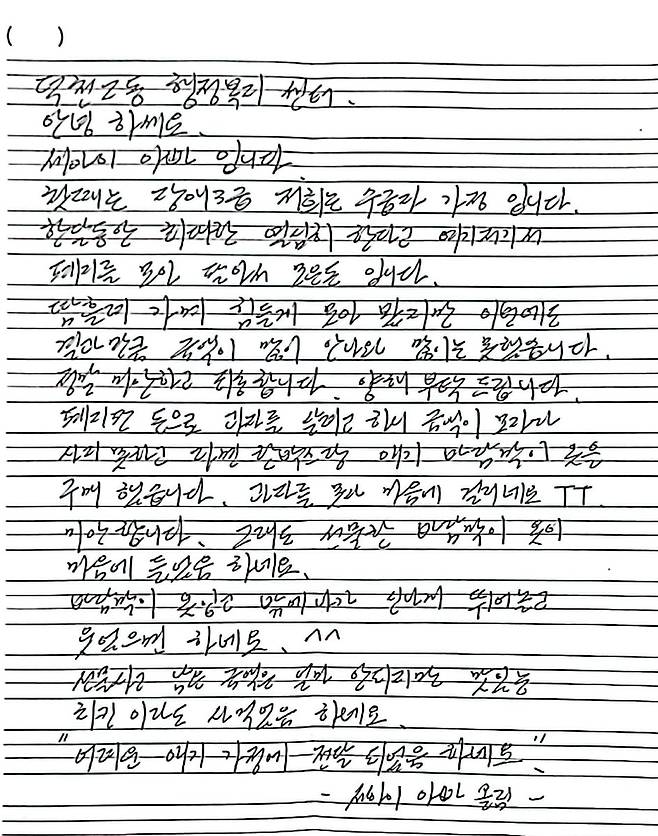 ( )
덕천2동 행정복지 쎈터.
안녕 하세요.
세아이 아빠 입니다.
첫째는 장애3급 저희는 수급자 가정 입니다.
한달동안 최대한 열심히 한다고 여기저기서
폐지를 모아 팔아서 모은돈 입니다.
땀흘리 가며 힘들게 모아 봤지만 이번에도
결과만큼 금액이 많이 안나와 많이는 못했습니다.
정말 미안하고 죄송합니다. 양해 부탁 드립니다.
폐지판 돈으로 과자를 살려고 하니 금액이 모자라
사지 못하고 라면 한박스랑 애기 바람막이 옷은
구매 했습니다. 과자를 못사 마음에 걸리네요 TT.
미안합니다. 그래도 선물한 바람막이 옷이
마음에 들었음 하네요.
바람막이 옷입고 밖에나가 신나게 뛰어놀고
웃었으면 하네요. ^^
선물사고 남은 금액은 얼마 안되지만 맛있는
치킨 이라도 사먹었음 하네요.
"어려운 애기 가정에 전달 되었음 하네요".
- 세아이 아빠 올림 -